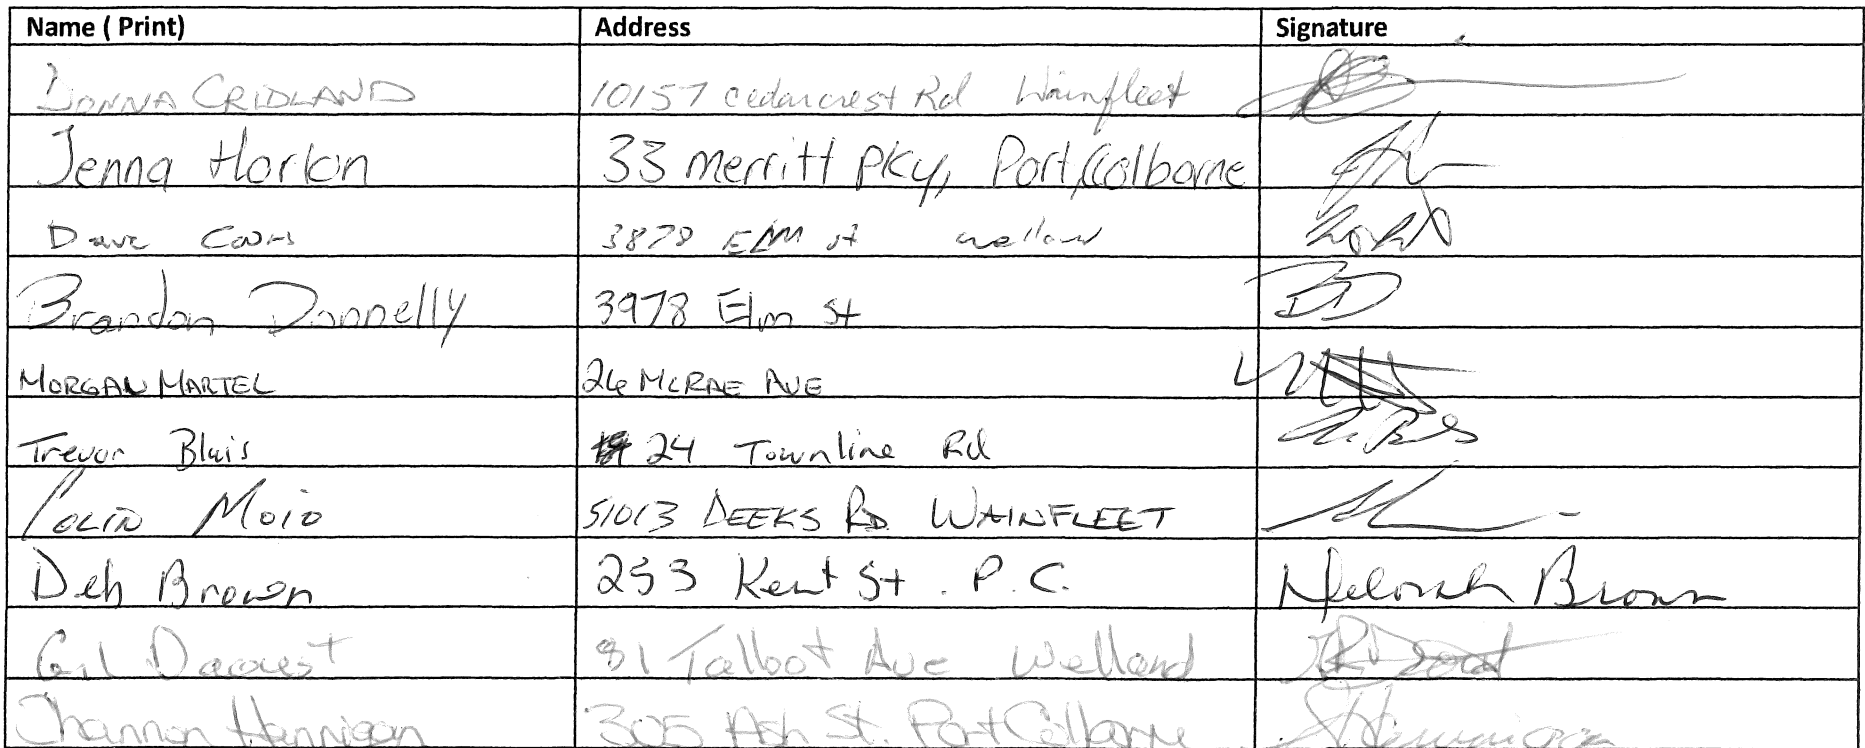 Name ( Print) Address Signature
DONNA CRIDLAND 10157 cedarcrest Rd Wainfleet
Jenna Horton 33 merritt pky, Port Colborne
Dave 3878 ELM st welland
Brandon Donnelly 3978 Elm St BD
MORGAN MARTEL 26 MCRAE AVE
Trevor Blais 24 Townline Rd
COLIN Moio 51013 DEEKS RD. WAINFLEET
Deb Brown 253 Kent St. P.C. Deborah Brown
Gil Daoust 81 Talbot Ave Welland
Channon Hannigan 305 Ash St. Port Colborne